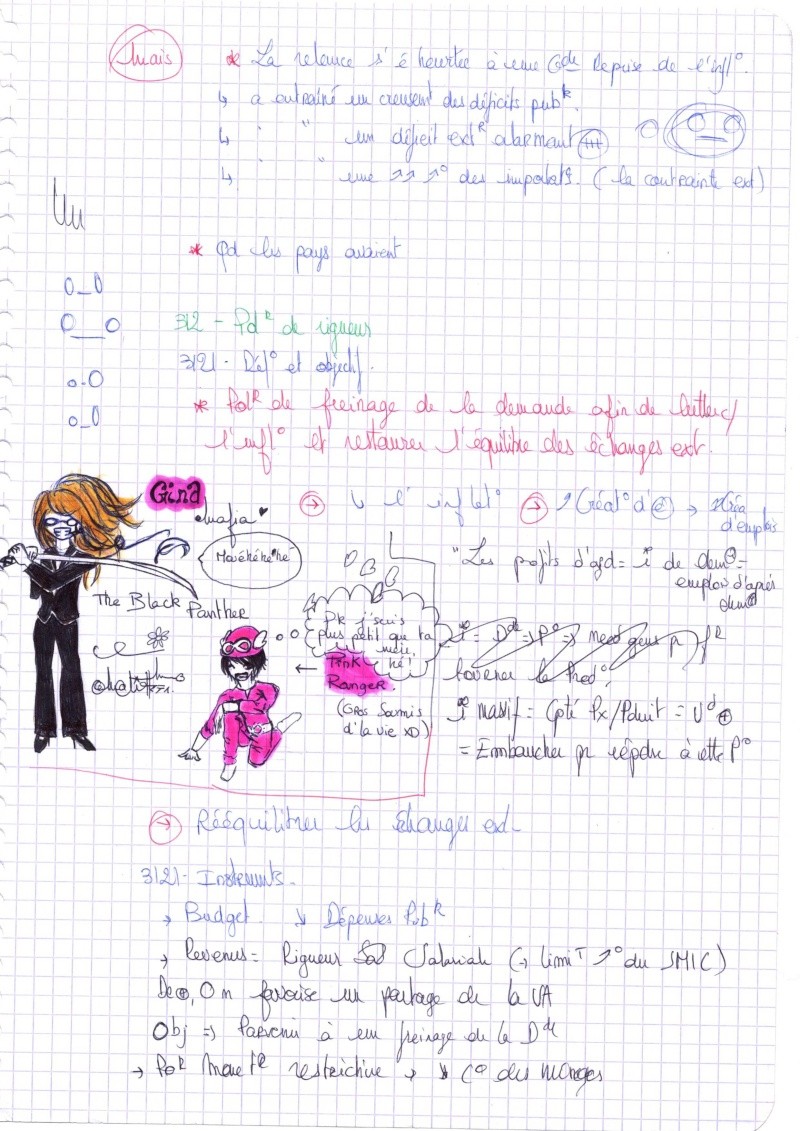 Mais
* La relance s'é heurtée à une Gde Reprise de l'infl°.
↳ a entraîné un creusent des déficits pub^k.
↳ " " un déficit ext^R alarmant +++
↳ " une ↗↗ ↗° des importat°. (la contrainte ext)
* Qd les pays avaient
O_O
O__O
312 - Pd^R de rigueur
o.O
3121. Déf° et objectif.
o_O
* Pol^R de freinage de la demande afin de lutter c/
l'infl° et restaurer l'équilibre des échanges ext.
Gina
Mafia ♥
→ ↘ l'inflat° → ↗ Créat° d'e → Créa
d'emplois
"Les profits d'ajd = i de dem =
emploi d'après
dem
The Black Panther
Pk j'suis
plus petit que ta
hé!
Pink
Ranger.
(Gros Soumis
d'la vie XD)
i = D^de => P° =>
i massif = Cpté Px/Pduit = U^d +
= Embaucher pr répdre à cette P°
→ Rééquilibrer les échanges ext.
3121. Instruments.
→ Budget. ↘ Dépenses Pub^k
→ Revenus = Rigueur Salariale (→ limit^T ↗° du SMIC)
De +, On favorise un partage de la VA
Obj => Parvenir à un freinage de la D^de
→ Pol^R Monet^R restrictive → ↘ C° des ménages